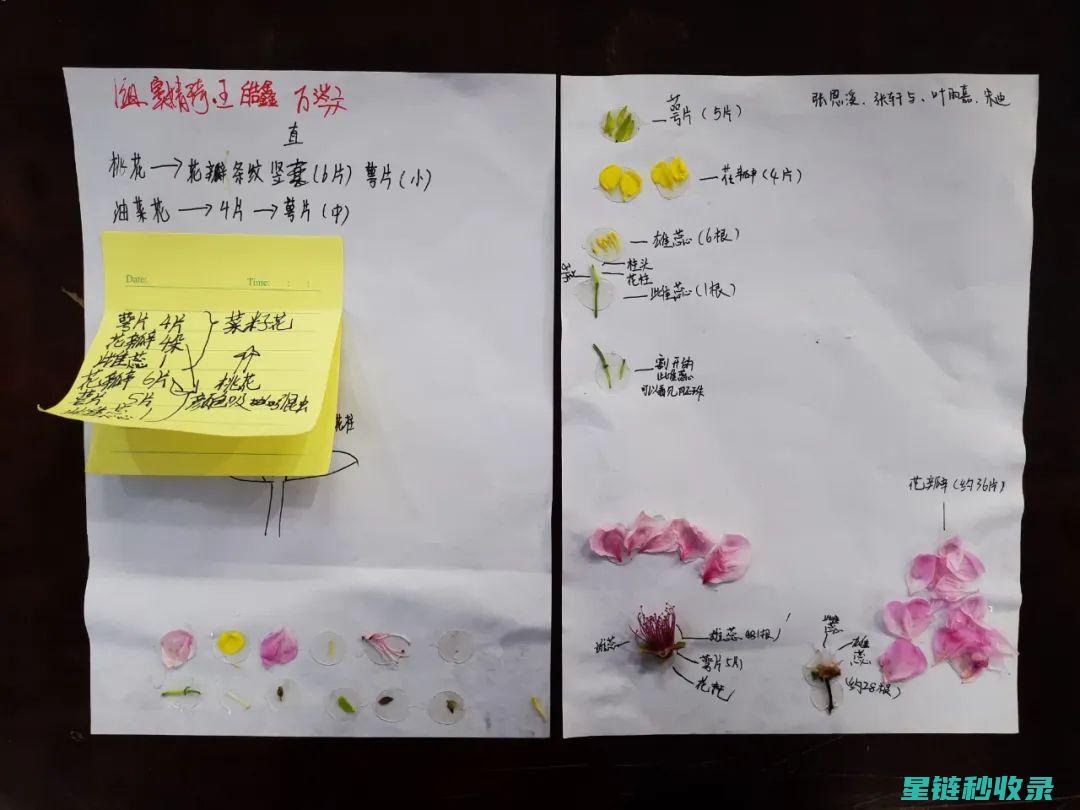 直
桃花→花瓣条纹竖 (6片) 萼片(小)
油菜花→4片→萼片(中)
Date:
Time: : :
萼片 4片
花瓣 4朵
雌蕊 1
花瓣 6片
萼片 5片
菜籽花
桃花
花柱
张思溪、张轩与、叶雨嘉、宋迪
萼片(5片)
花瓣(4片)
雄蕊(6根)
柱头
花柱
雌蕊(1根)
割开的
雌蕊
可以看见
花瓣(约36片)
雌蕊
雄蕊
萼片5片
雌蕊
雄蕊
(约28根)
星链秒收录